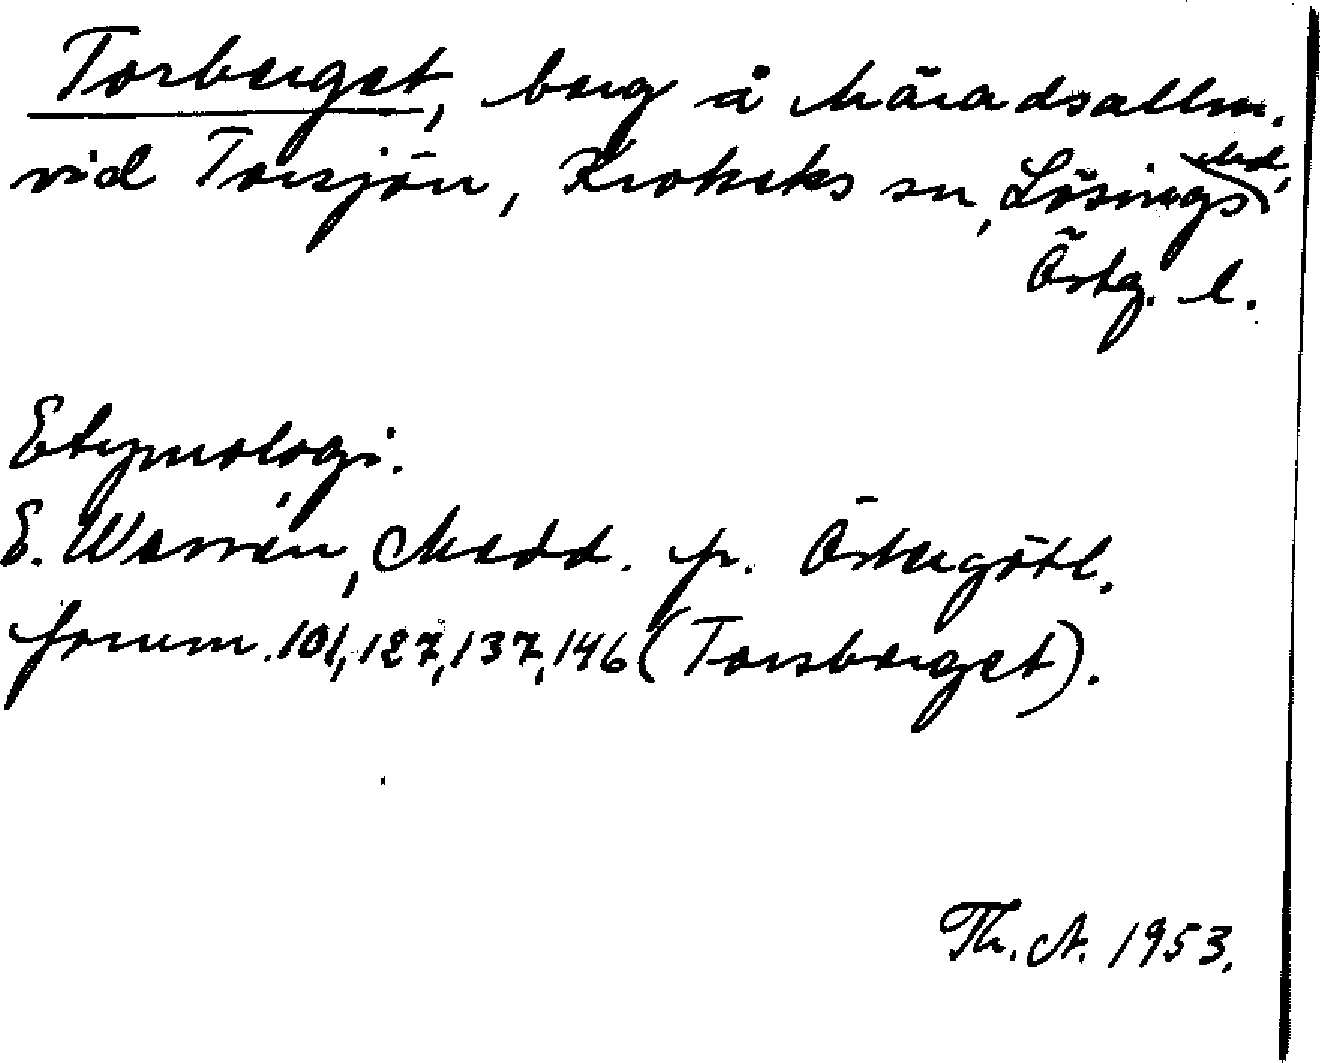 Torberget, berg å häradsallm.
vid Torsjön, Krokeks sn, Lösings hd,
Östg. l.
Etymologi.
E. Wessén, Medd. fr. Östergötl.
fornm. 101, 127, 137, 146 (Torsberget).
Th. A. 1953.